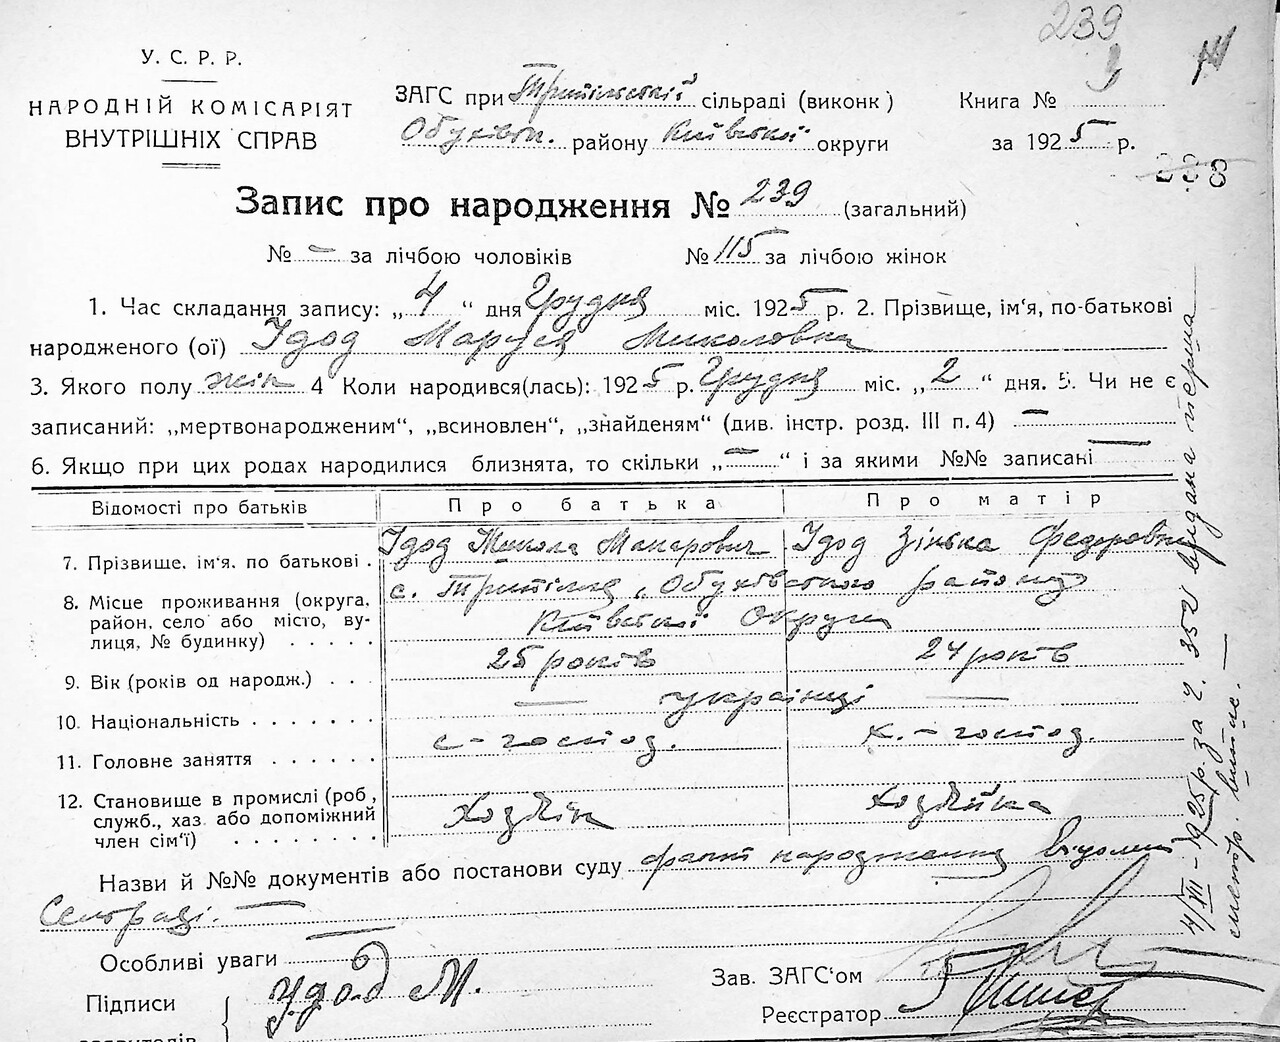 239
У. С. Р. Р.
НАРОДНІЙ КОМІСАРІЯТ
ВНУТРІШНІХ СПРАВ
ЗАГС при Трипільській сільраді (виконк)
Обухівськ. району Київської округи
Книга №
за 1925 р.
238
Запис про народження № 239 (загальний)
№ — за лічбою чоловіків № 115 за лічбою жінок
1. Час складання запису: „4“ дня Грудня міс. 1925 р. 2. Прізвище, ім'я, по-батькові
народженого (ої) Удод Маруся Миколовна
3. Якого полу жін 4 Коли народився(лась): 1925 р. Грудня міс. „2“ дня. 5. Чи не є
записаний: „мертвонародженим“, „всиновлен“, „знайденям“ (див. інстр. розд. III п. 4) —
6. Якщо при цих родах народилися близнята, то скільки „—“ і за якими №№ записані —
Відомості про батьків Про батька Про матір
7. Прізвище. ім'я. по батькові . Удод Микола Макарович Удод Зінька Федоровна
8. Місце проживання (округа, район, село або місто, вулиця, № будинку) . . . . .
с. Трипілля, Обухівського району
Київської Округи
9. Вік (років од народж.) . . . 25 років 24 років
10. Національність . . . . . . . — українці —
11. Головне заняття . . . . . . с-господ. х.-господ.
12. Становище в промислі (роб., служб., хаз або допоміжний член сім'ї) . . . . . . .
Хозяїн Хозяйка
Назви й №№ документів або постанови суду факт народження відомий
Сельраді. —
Особливі уваги —
Підписи
Удод М.
Зав. ЗАГС'ом
Реєстратор
заявителів
4/XII-1925 р. за ч. 352 видана перша
метр. випис. —